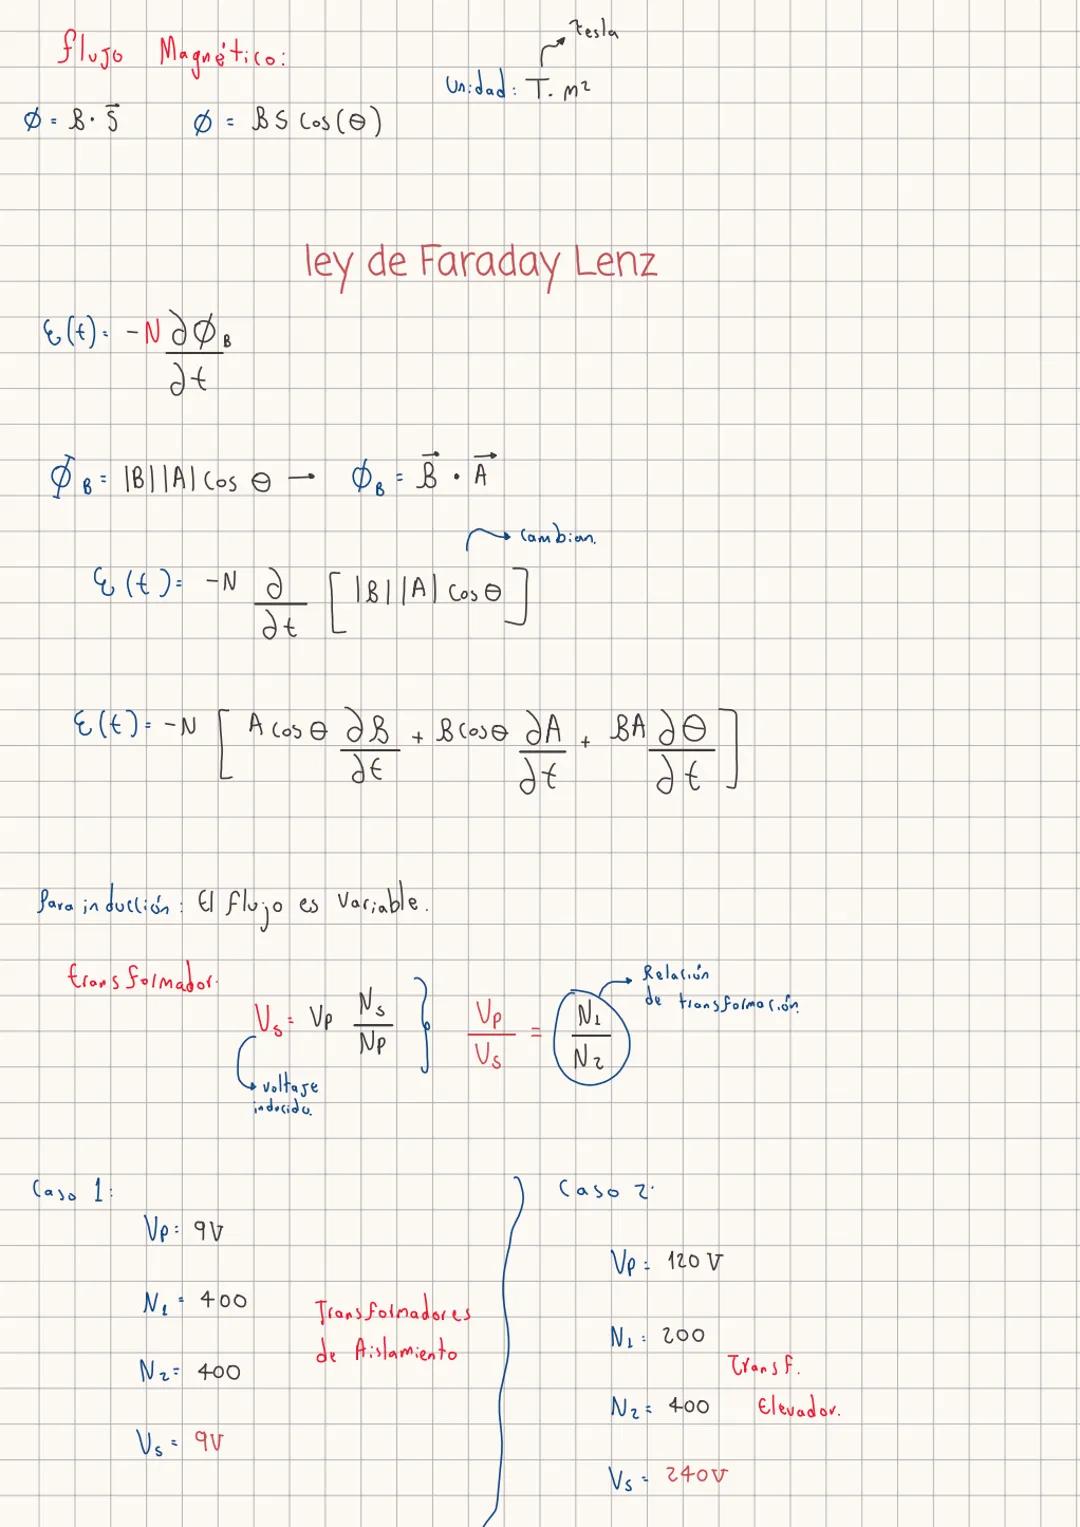 flujo Magnético:
tesla
Unidad: T. m²
Ø = B · S⃗   Ø = B S Cos(θ)
ley de Faraday Lenz
ε(t) = -N ∂Ø_B / ∂t
Φ_B = |B||A| Cos θ → Φ_B = B⃗ · A⃗
Cambian.
ε(t) = -N ∂/∂t [ |B||A| Cos θ ]
ε(t) = -N [ A cos θ ∂B/∂t + B cos θ ∂A/∂t + BA ∂θ/∂t ]
Para inducción: El flujo es Variable.
transformador.
Vs = Vp Ns/Np } Vp/Vs = N1/N2
Relación
de transformación
voltaje
inducido.
Caso 1:
Vp = 9V
N1 = 400
N2 = 400
Vs = 9V
Transformadores
de Aislamiento
Caso 2.
Vp = 120 V
N1 = 200
N2 = 400
Vs = 240V
Transf.
Elevador.